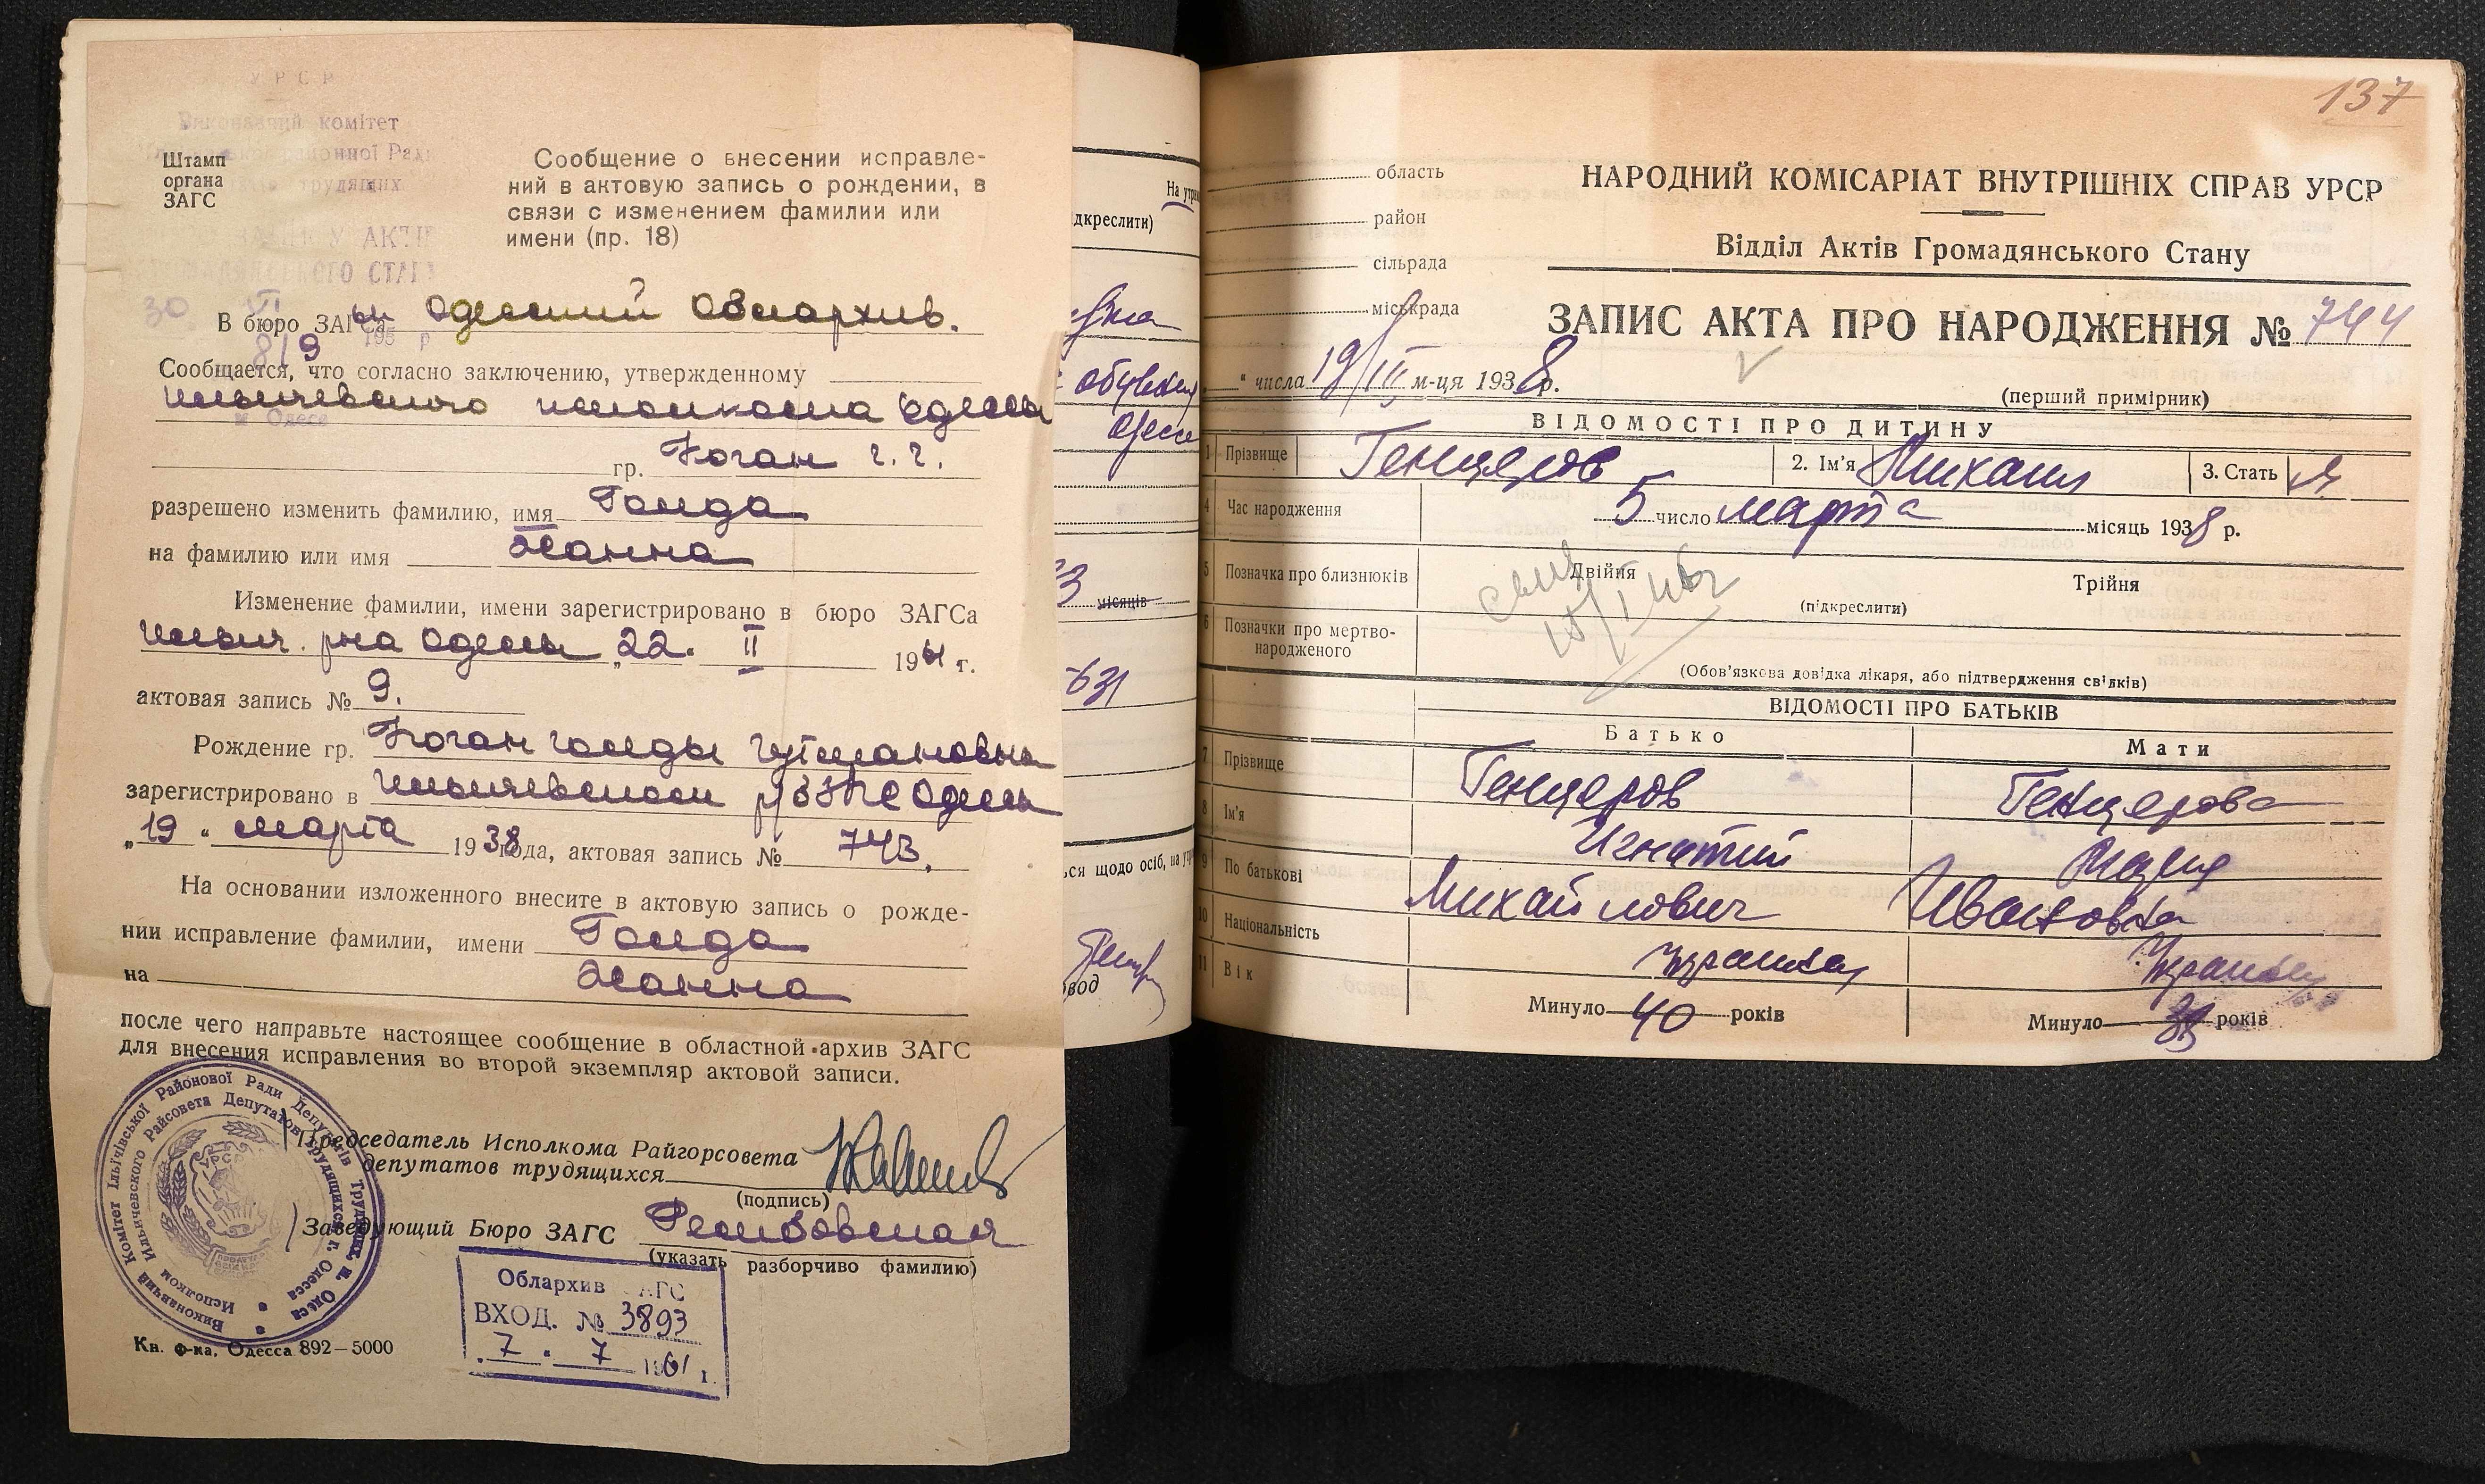 У Р С Р
Виконавчий комітет
районної Ради
трудящих
Штамп
органа
ЗАГС
АКТІВ
ГРОМАДЯНСЬКОГО СТАНУ
30 VI 195 р
819
м Одеса
Сообщение о внесении исправле-
ний в актовую запись о рождении, в
связи с изменением фамилии или
имени (пр. 18)
В бюро ЗАГСа Одесский Облархив.
Сообщается, что согласно заключению, утвержденному
Ильичевского исполкома Одессы
гр. Коган Г. Г.
разрешено изменить фамилию, имя Голда
на фамилию или имя Жанна
Изменение фамилии, имени зарегистрировано в бюро ЗАГСа
Ильич. р-на Одессы „22. II 1961 г.
актовая запись № 9.
Рождение гр. Коган Голды Гутмановны
зарегистрировано в Ильичевском р/ЗАГС Одессы
„19 “ марта 1938 года, актовая запись № 743.
На основании изложенного внесите в актовую запись о рожде-
нии исправление фамилии, имени Голда
на Жанна
после чего направьте настоящее сообщение в областной архив ЗАГС
для внесения исправления во второй экземпляр актовой записи.
Председатель Исполкома Райгорсовета
депутатов трудящихся
(подпись)
Заведующий Бюро ЗАГС
(указать разборчиво фамилию)
Виконавчий Комітет Іллічівської Районової Ради Депутатів Трудящих м. Одеса
Исполком Ильичевского Райсовета Депутатов Трудящихся г. Одесса
УРСР
Облархив ЗАГС
ВХОД. № 3893
„7 “ 7 1961 г.
Кн. ф-ка, Одесса 892—5000
На утри
дкреслити)
Одесс
3 місяців
631
ься щодо осіб, на утр
137
область
район
сільрада
міськрада
НАРОДНИЙ КОМІСАРІАТ ВНУТРІШНІХ СПРАВ УРСР
Відділ Актів Громадянського Стану
ЗАПИС АКТА ПРО НАРОДЖЕННЯ № 744
“ числа 19/III м-ця 1938 р.
(перший примірник)
ВІДОМОСТІ ПРО ДИТИНУ
1 Прізвище Генцеров 2. Ім'я Михаил 3. Стать М
4 Час народження 5 число марта місяць 1938 р.
5 Позначка про близнюків Двійня Трійня
(підкреслити)
6 Позначки про мертво-
народженого
(Обов'язкова довідка лікаря, або підтвердження свідків)
ВІДОМОСТІ ПРО БАТЬКІВ
Батько Мати
7 Прізвище Генцеров Генцерова
8 Ім'я Игнатий Мария
9 По батькові Михайлович Ивановна
10 Національність
11 Вік Минуло 40 років Минуло років